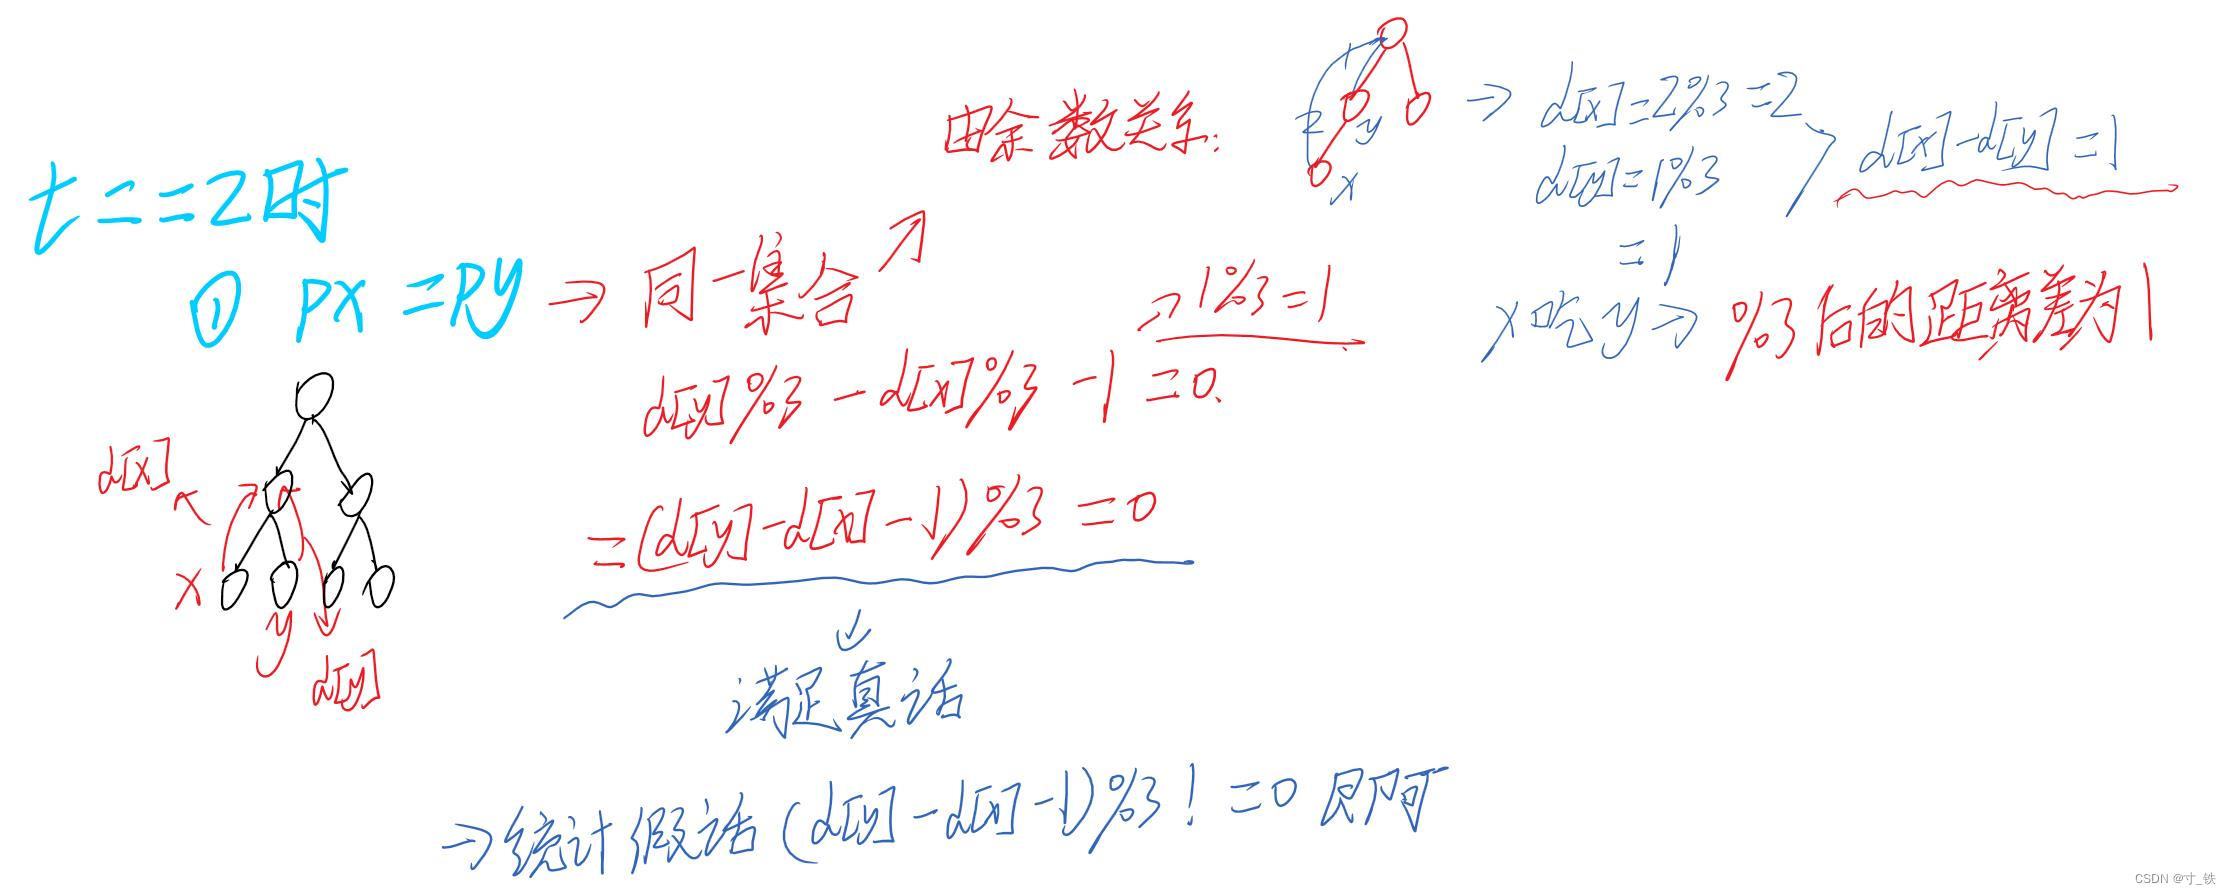 t==2时
① px=py→同一集合↗
由余数关系:
2
1
y
x
→ d[x]=2%3=2
d[y]=1%3
=1
d[x]-d[y]=1
x吃y→%3后的距离差为1
→1%3=1
d[y]%3-d[x]%3-1=0.
=(d[y]-d[x]-1)%3=0
满足真话
→统计假话(d[y]-d[x]-1)%3!=0即可
d[x]
x
y
d[y]
CSDN @寸_铁